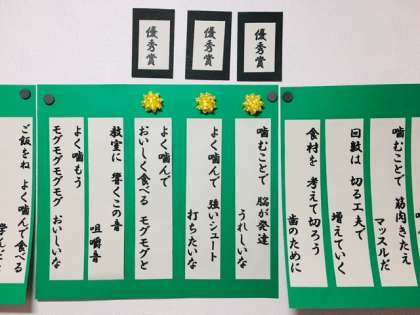 優秀賞
優秀賞
優秀賞
噛むことで 筋肉きたえ
マッスルだ
回数は 切る工夫で
増えていく
食材を 考えて切ろう
歯のために
噛むことで 脳が発達
うれしいな
よく噛んで 強いシュート
打ちたいな
よく噛んで
おいしく食べる モグモグと
教室に 響くこの音
咀嚼音
よく噛もう
モグモグモグモグ おいしいな
ご飯をね よく噛んで食べる
学んだ